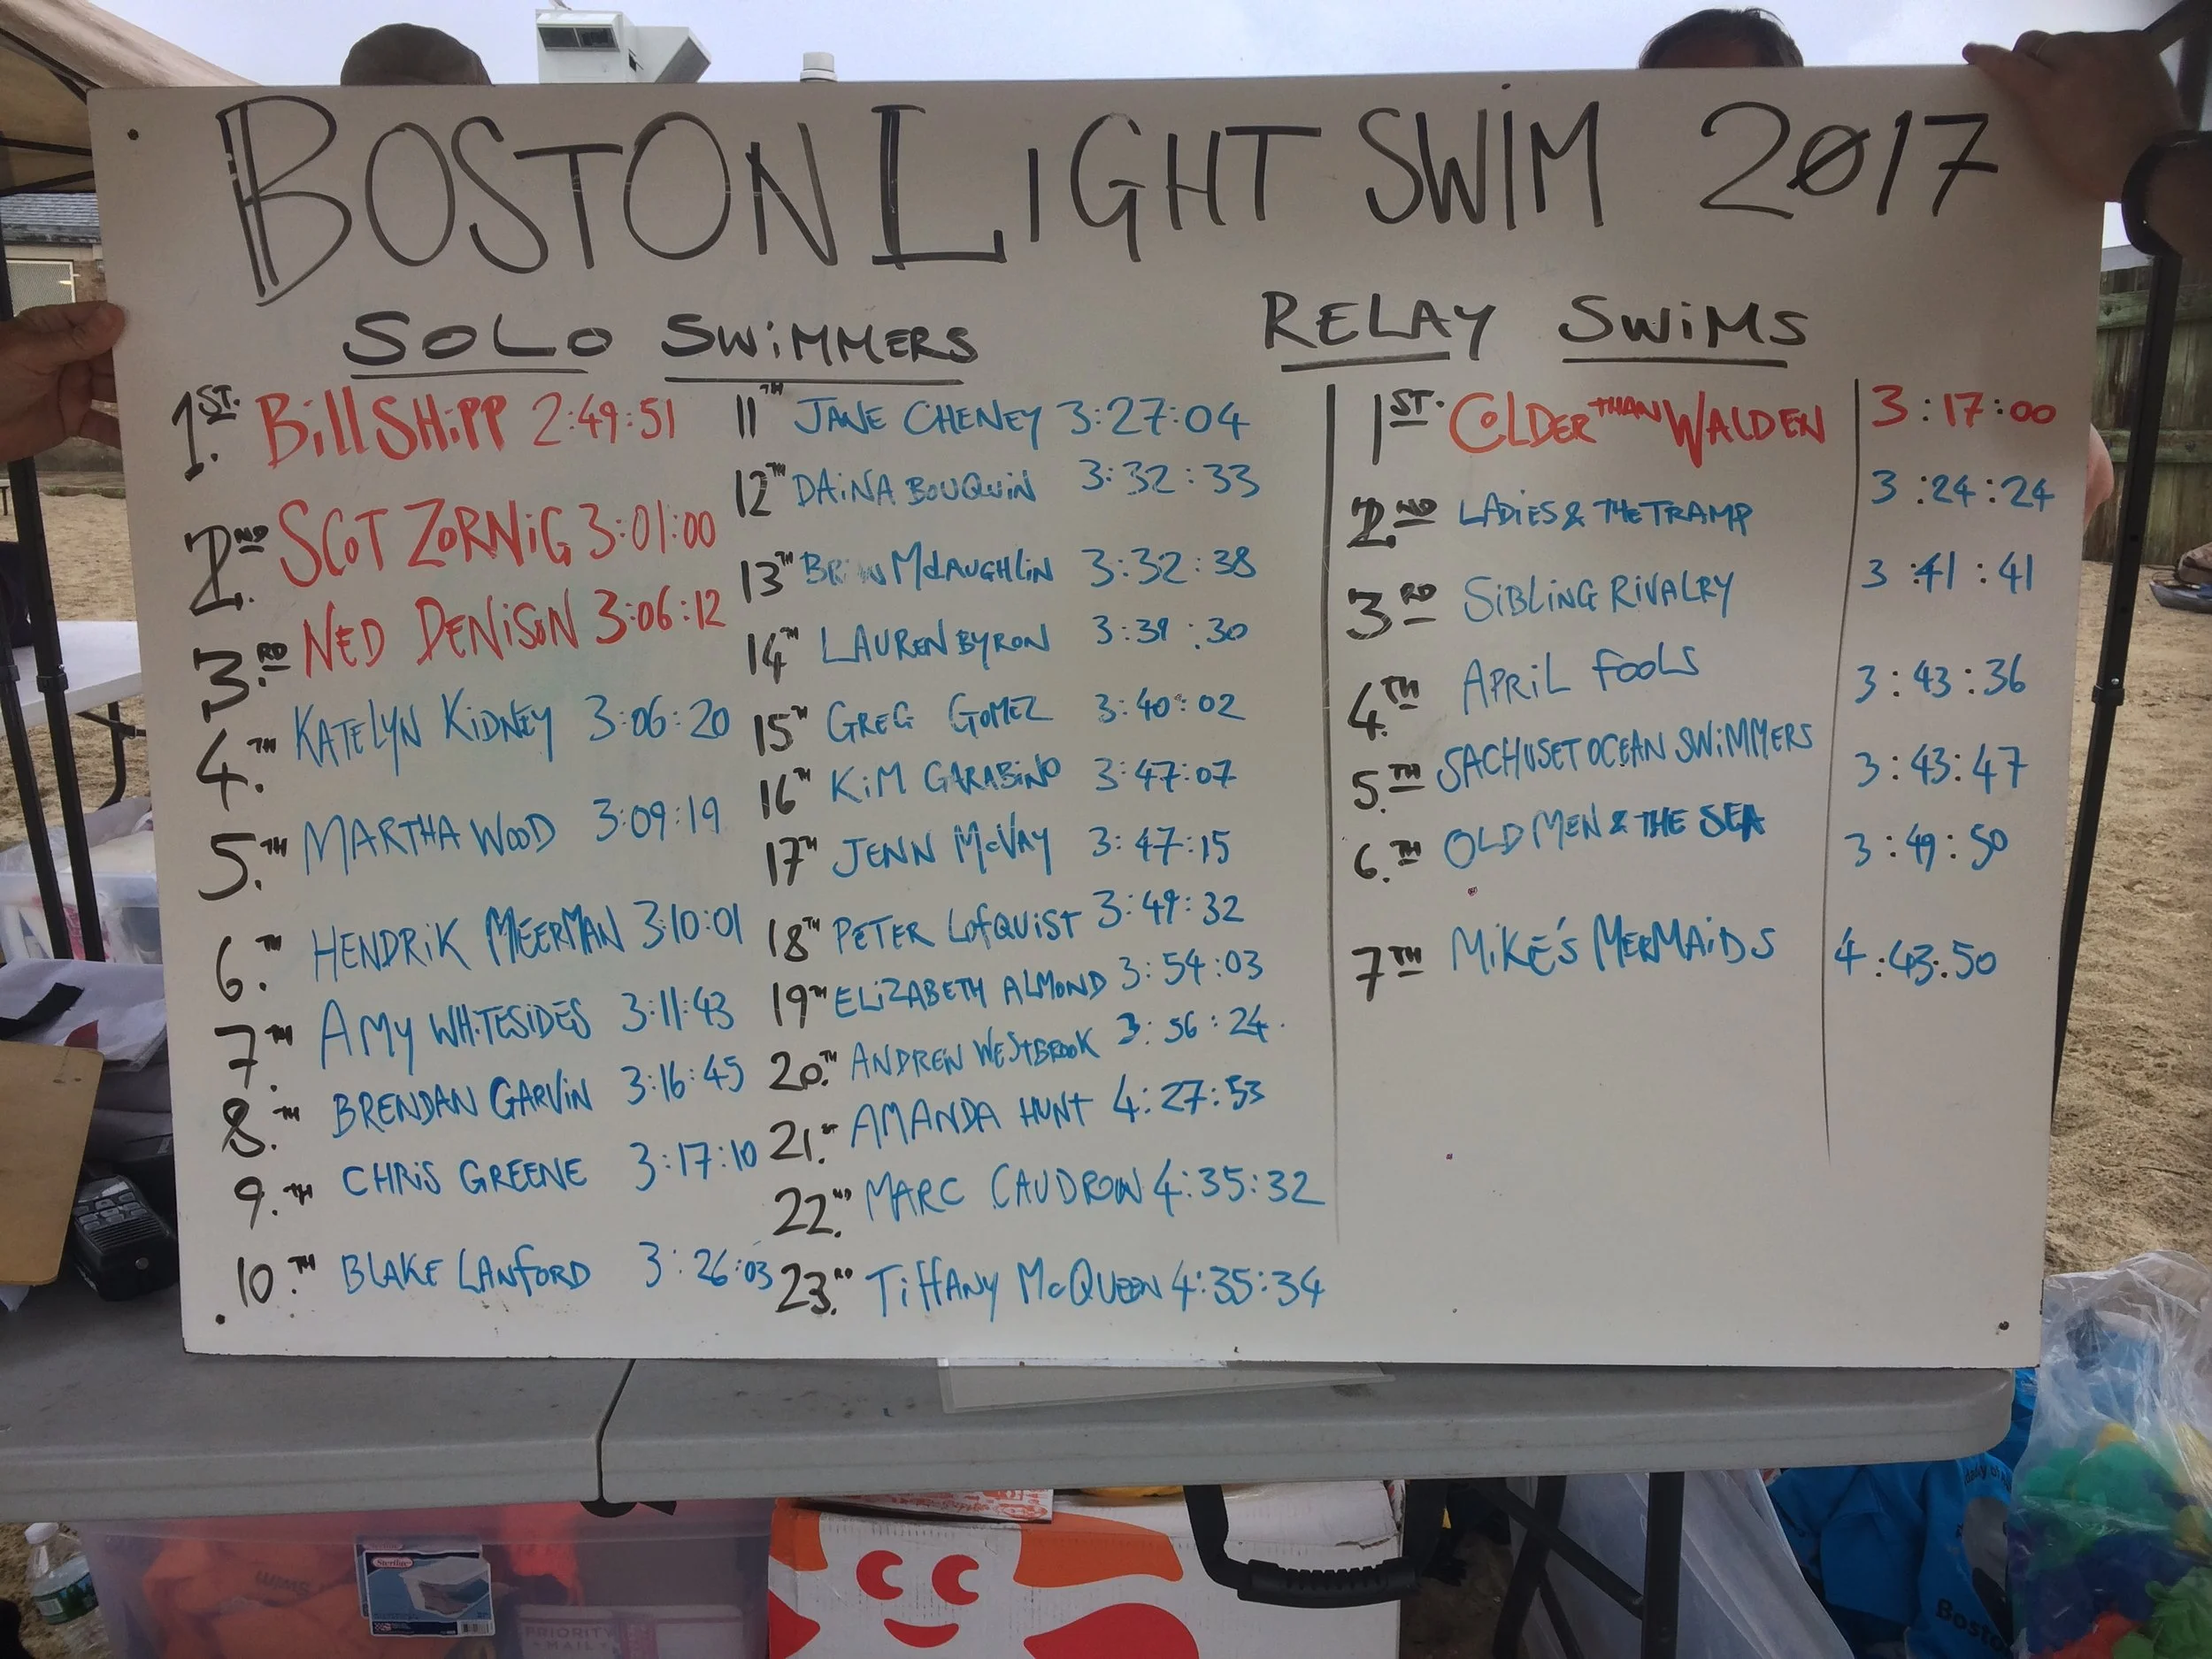 BOSTON LIGHT SWIM 2017
SOLO SWIMMERS
1ST. Bill SHiPP 2:49:51
2ND. SCOT ZORNiG 3:01:00
3.RD NED DENiSON 3:06:12
4.TH KATELYN KiDNEY 3:06:20
5.TH MARTHA WOOD 3:09:19
6.TH HENDRiK MEERMAN 3:10:01
7.TH AMY WHiTESiDES 3:11:43
8.TH BRENDAN GARViN 3:16:45
9.TH CHRiS GREENE 3:17:10
10.TH BLAKE LANFORD 3:26:03
11TH JANE CHENEY 3:27:04
12TH DAiNA BOUQUiN 3:32:33
13TH McLAUGHLiN 3:32:38
14TH LAUREN BYRON 3:39:30
15TH GREG GOMEZ 3:40:02
16TH KiM GARABiNO 3:47:07
17TH JENN McVAY 3:47:15
18TH PETER LOFQUiST 3:49:32
19TH ELiZABETH ALMOND 3:54:03
20.TH ANDREW WESTBROOK 3:56:24.
21.ST AMANDA HUNT 4:27:53
22.ND MARC CAUDRON 4:35:32
23.RD TiFFANY McQUEEN 4:35:34
RELAY SWiMS
1ST. COLDER THAN WALDEN 3:17:00
2ND LADiES & THE TRAMP 3:24:24
3RD SiBLiNG RiVALRY 3:41:41
4.TH APRiL FOOLS 3:43:36
5.TH SACHUSET OCEAN SWiMMERS 3:43:47
6.TH OLD MEN & THE SEA 3:49:50
7TH MiKE'S MERMAiDS 4:43:50
Sterilite
PRIORITY
MAIL